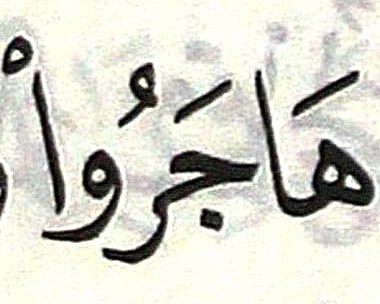 هَاجَرُواْ